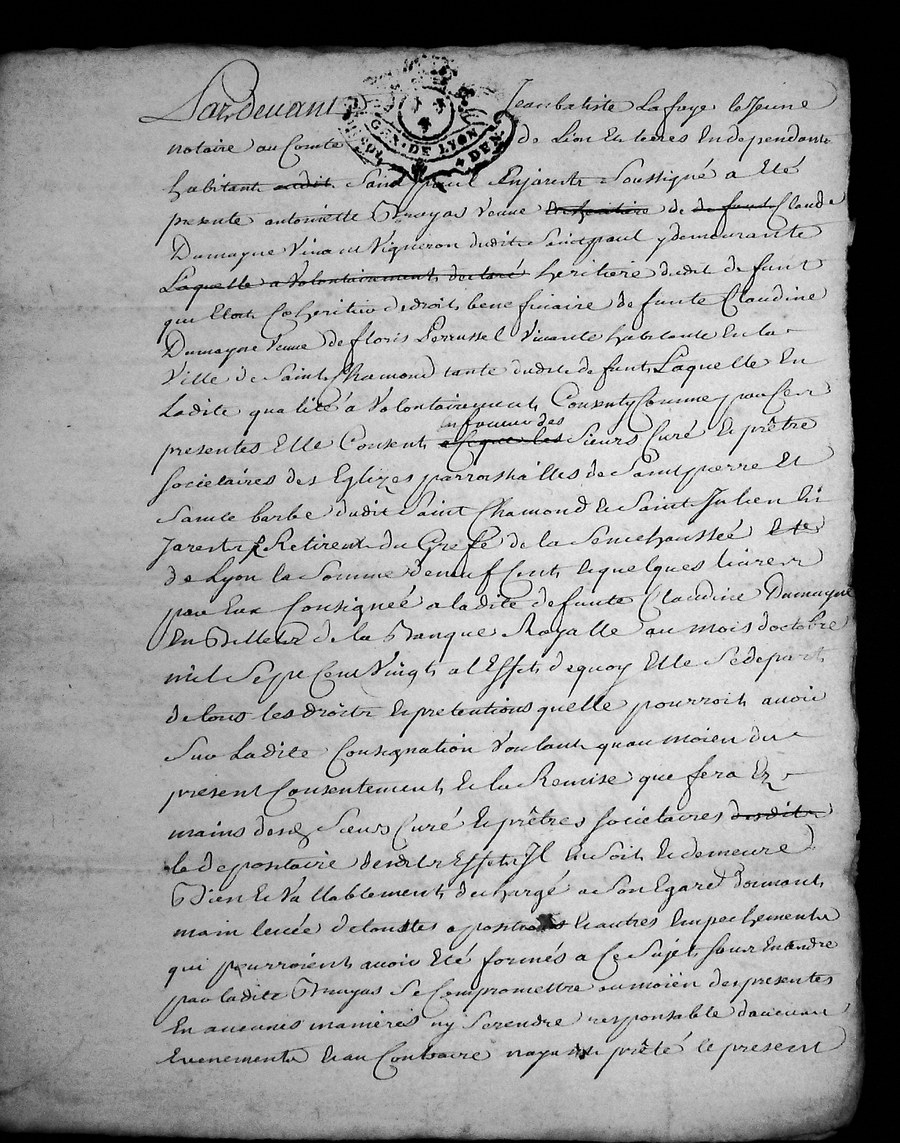 Pardevant Jean batiste Lafaye le Jeune
GEN. DE LYON DEN
notaire au Comté de Lion Et terres En dependants
habitant audit Saint paul Enjarestz Soussigné a Eté
presente antoinette Thuyas veuve de de funt Claude
Dumayne vivant vigneron dudit Saint paul y demeurante
Laquelle a volontairement declaré heritiere dudit de funt
qui Etoit Coheritier de droit bene ficiaire de funte Claudine
Dumayne veuve de floris Perrussel vivante habitante En la
ville de Saint Chamond tante dudit de funt, Laquelle En
Ladite qualité a volontairement Consenty Comme par Ces
en faveur des
presentes Elle Consent a Ce que les Sieurs Curé & prêtre
Societaires des Eglizes parroissialles de Saint pierre Et
Sainte barbe dudit Saint Chamond & Saint Julien En
Jarestz Retirent du Grefe de la Senechaussée
de Lyon la Somme de neuf Cent & quelques livres
par Eux Consignée a ladite defunte Claudine Dumayne
En Billets de la Banque Royalle au mois doctobre
mil Sept Cent Vingt a l Effet dequoy Elle Se depart
de tous les droits & pretentions quelle pourroit avoir
Sur Ladite Consignation voulant quau moien du
present Consentement & la Remise que fera Ez
mains desd Sieurs Curé & prêtres Societaires desdits
le depositaire desdits Effets Il En Soit & demeure
Bien & vallablement dechargé a Son Egard donnant
main levée de toutes & autres Empechements
qui pourroient avoir Eté formés a Ce Sujet, Sans Entendre
par ladite Thuyas Se Compromettre au moien des presentes
En aucunes manieres ny Se rendre responsable daucuns
Evenements & au Contraire nayant preté le present